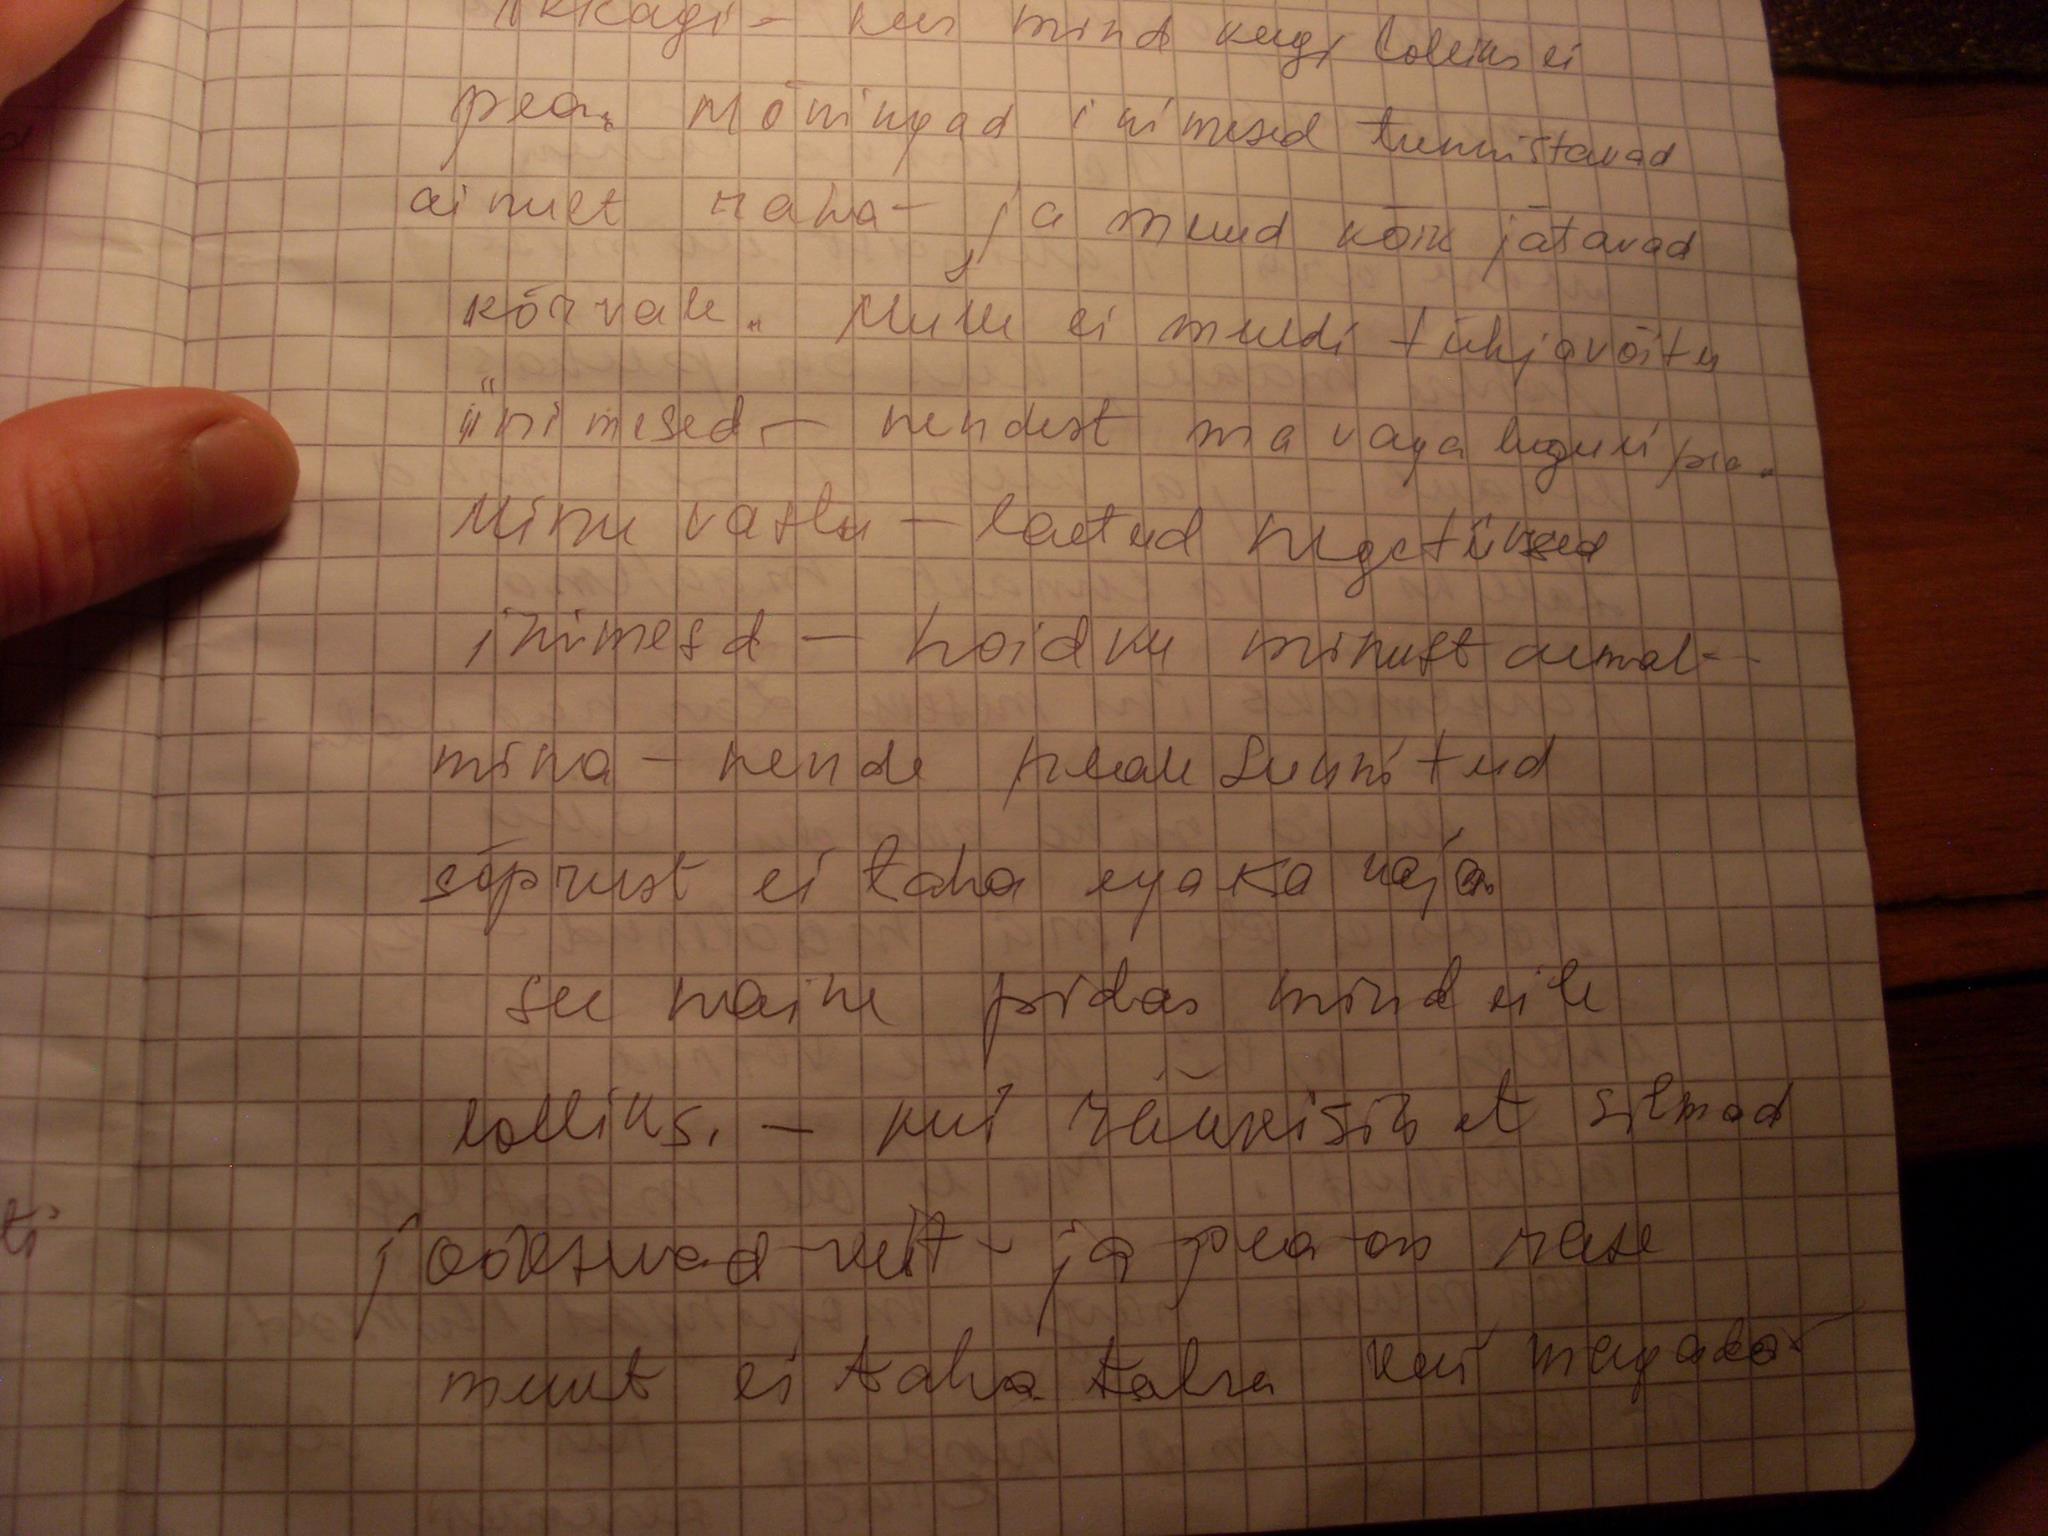 kus mind keegi lolliks ei
pea. Mõningad inimesed tunnistavad
ainult raha – ja muud kõik jätavad
kõrvale. Mulle ei meeldi tühjavõitu
inimesed – nendest ma väga lugu ei pea.
Minu vastu – laetud negatiivsed
inimesd – hoidku minust eemal –
mina – nende peale sunnitud
sõprust ei taha ega ka vaja.
See naine pidas mind eile
lolliks. – kui rääkisin et silmad
jooksevad vett – ja pea on raske
muut ei taha taha kui magada